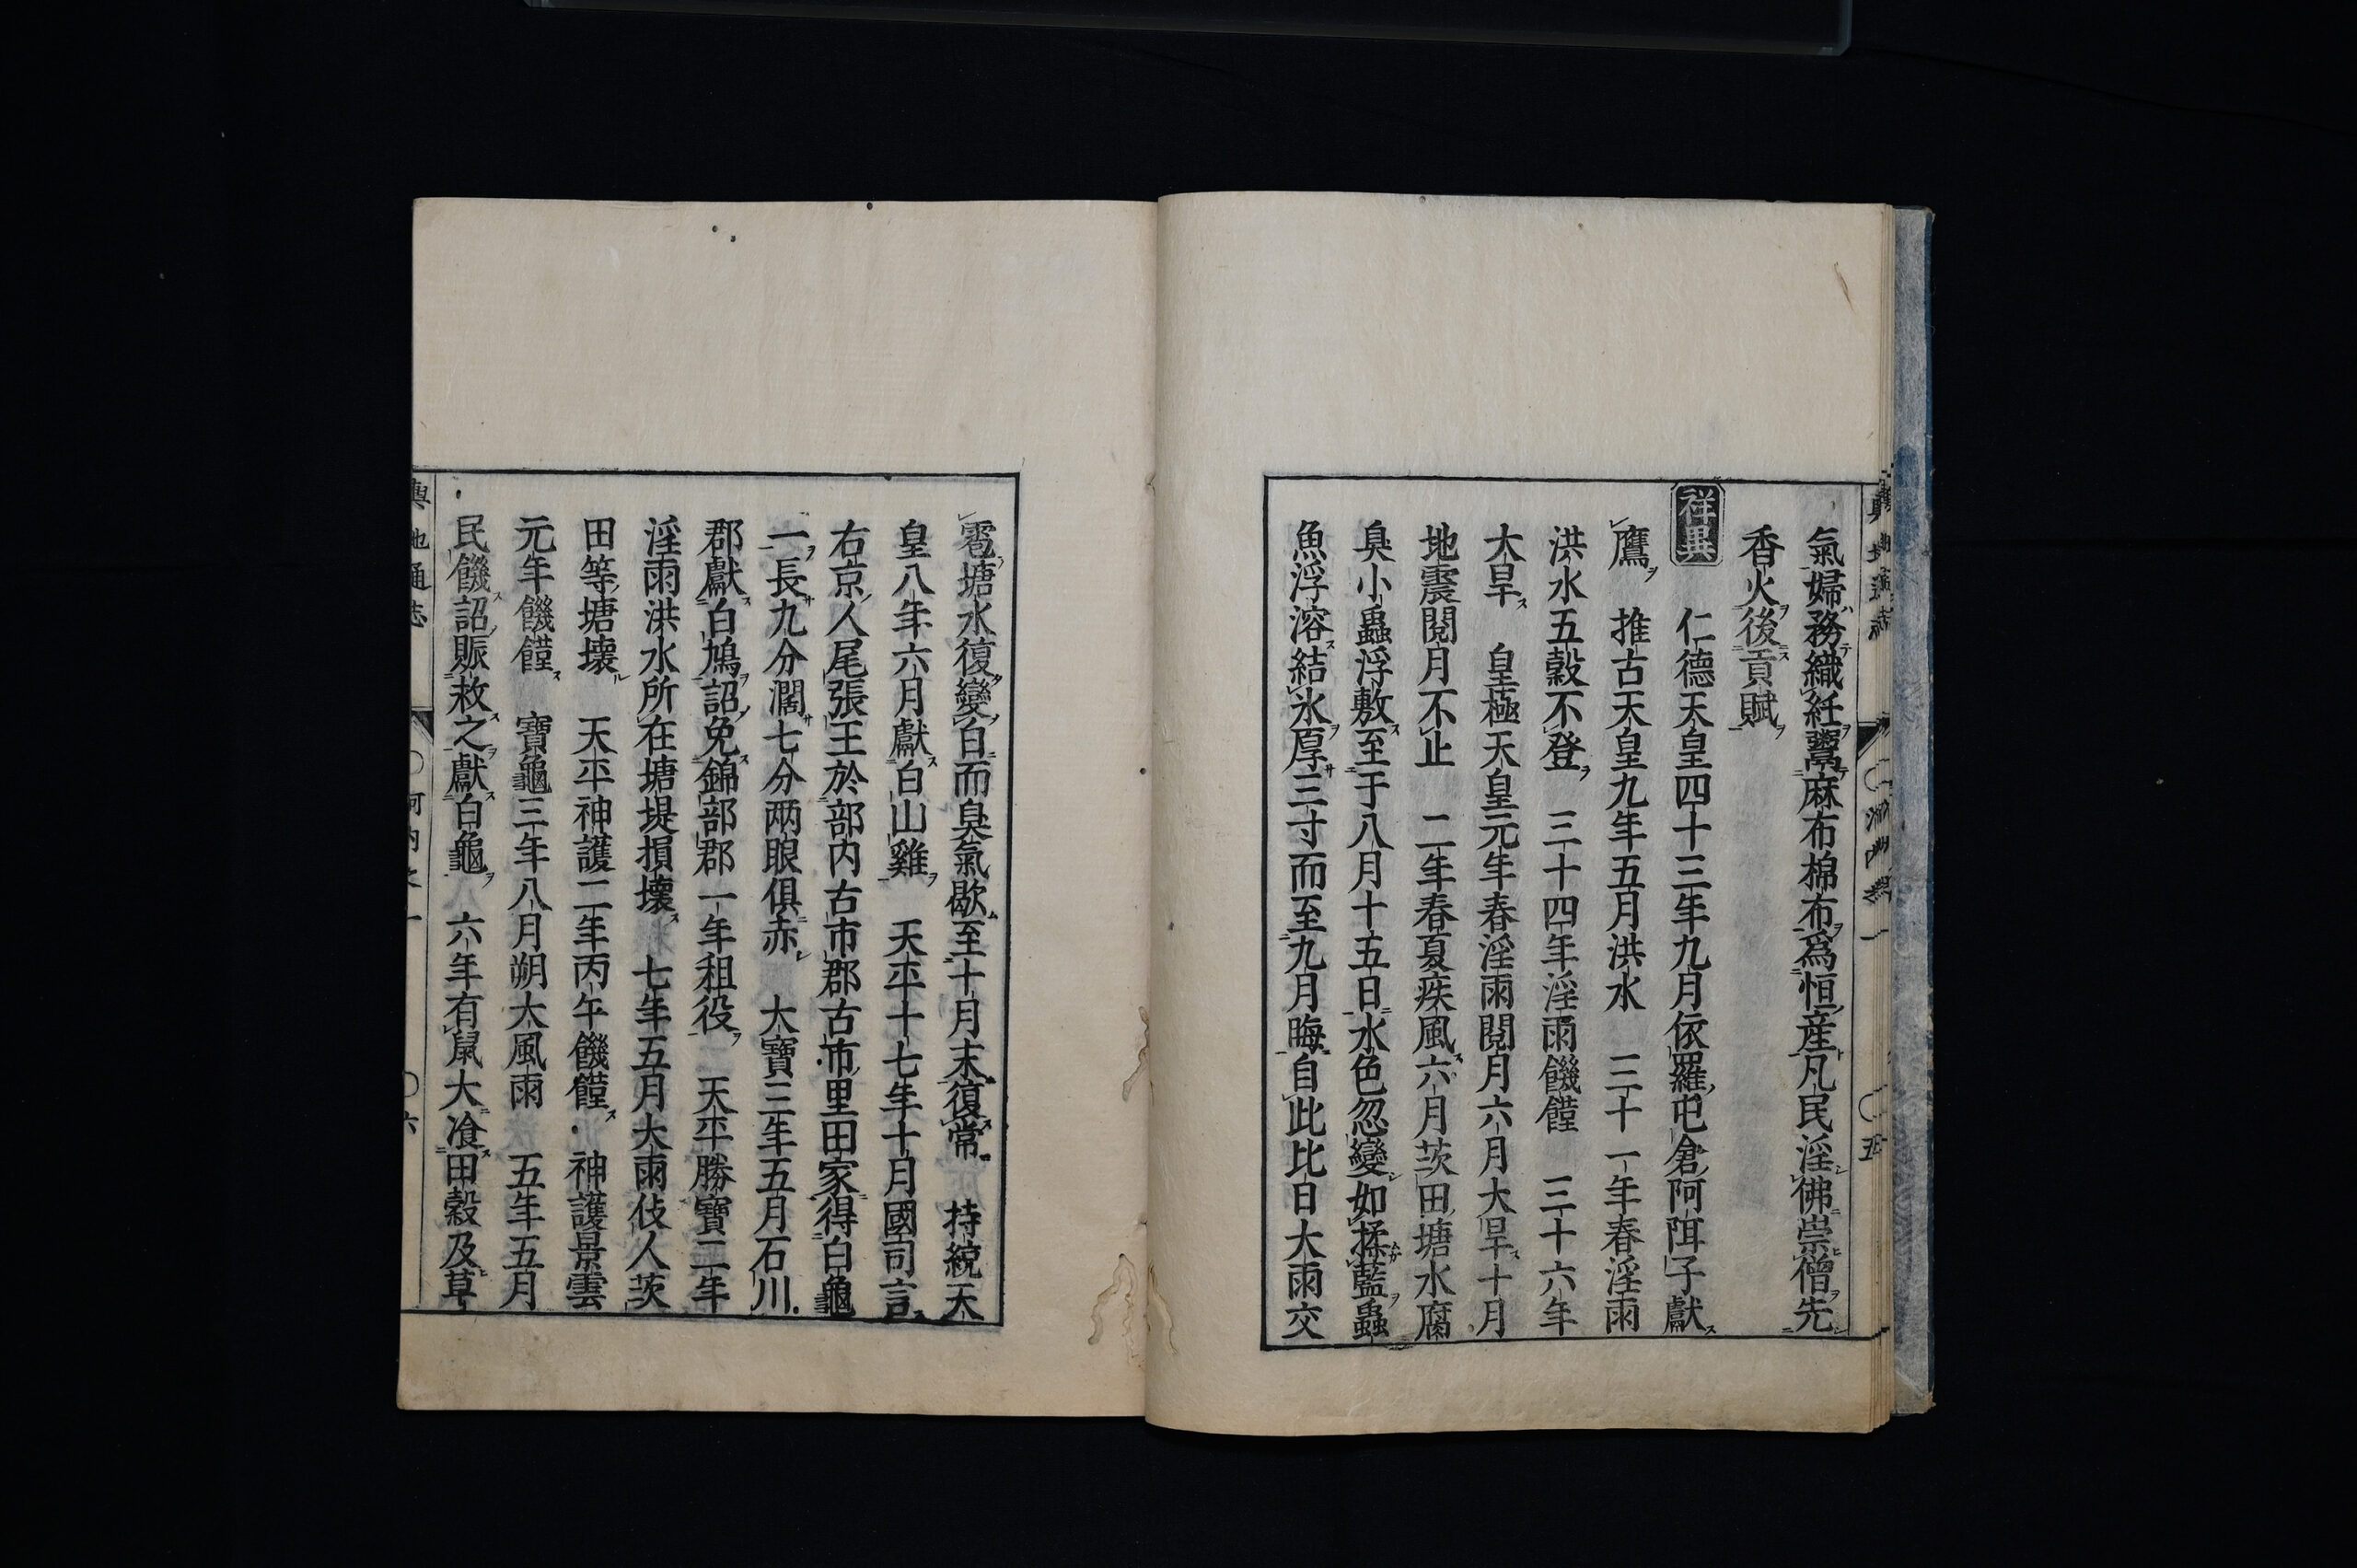 氣婦務織紝鬻麻布棉布爲恒産凡民淫佛崇僧先
香火後貢賦
祥異
仁德天皇四十三年九月依羅屯倉阿弭子獻
鷹　推古天皇九年五月洪水　三十一年春淫雨
洪水五穀不登　三十四年淫雨饑饉　三十六年
大旱　皇極天皇元年春淫雨閱月六月大旱十月
地震閱月不止　二年春夏疾風六月茨田塘水腐
臭小蟲浮敷至于八月十五日水色忽變如揉藍蟲
魚浮溶結氷厚三寸而至九月晦自此比日大雨交
雹塘水復變白而臭氣歇至十月末復常　持統天
皇八年六月獻白山雞　天平十七年十月國司言
右京人尾張王於部内古市郡古市里田家得白龜
一長九分濶七分兩眼俱赤　大寶三年五月石川
郡獻白鳩詔免錦部郡一年租役　天平勝寶二年
淫雨洪水所在塘堤損壞　七年五月大雨伎人茨
田等塘壞　天平神護二年丙午饑饉　神護景雲
元年饑饉　寶龜三年八月朔大風雨　五年五月
民饑詔賑救之獻白龜　六年有鼠大飡田穀及草
輿地通志　〇河内之一　〇六